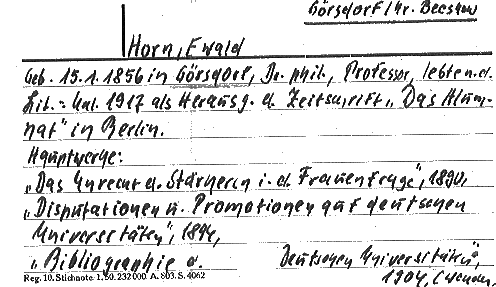 Görsdorf/Kr. Beeskow
Horn, Ewald
Geb. 15.1.1856 in Görsdorf, Dr. phil., Professor, lebte n. d.
Lit.: Kal. 1917 als Herausg. d. Zeitschrift „Das Alum-
nat" in Berlin.
Hauptwerke:
„Das Unrecht d. Stärkeren i. d. Frauenfrage", 1890,
„Disputationen u. Promotionen auf deutschen
Universitäten", 1894,
„Bibliographie d. Deutschen Universitäten",
1904, (
Reg. 10. Stichnote 1. 50. 232 000. A. 803. S. 4062